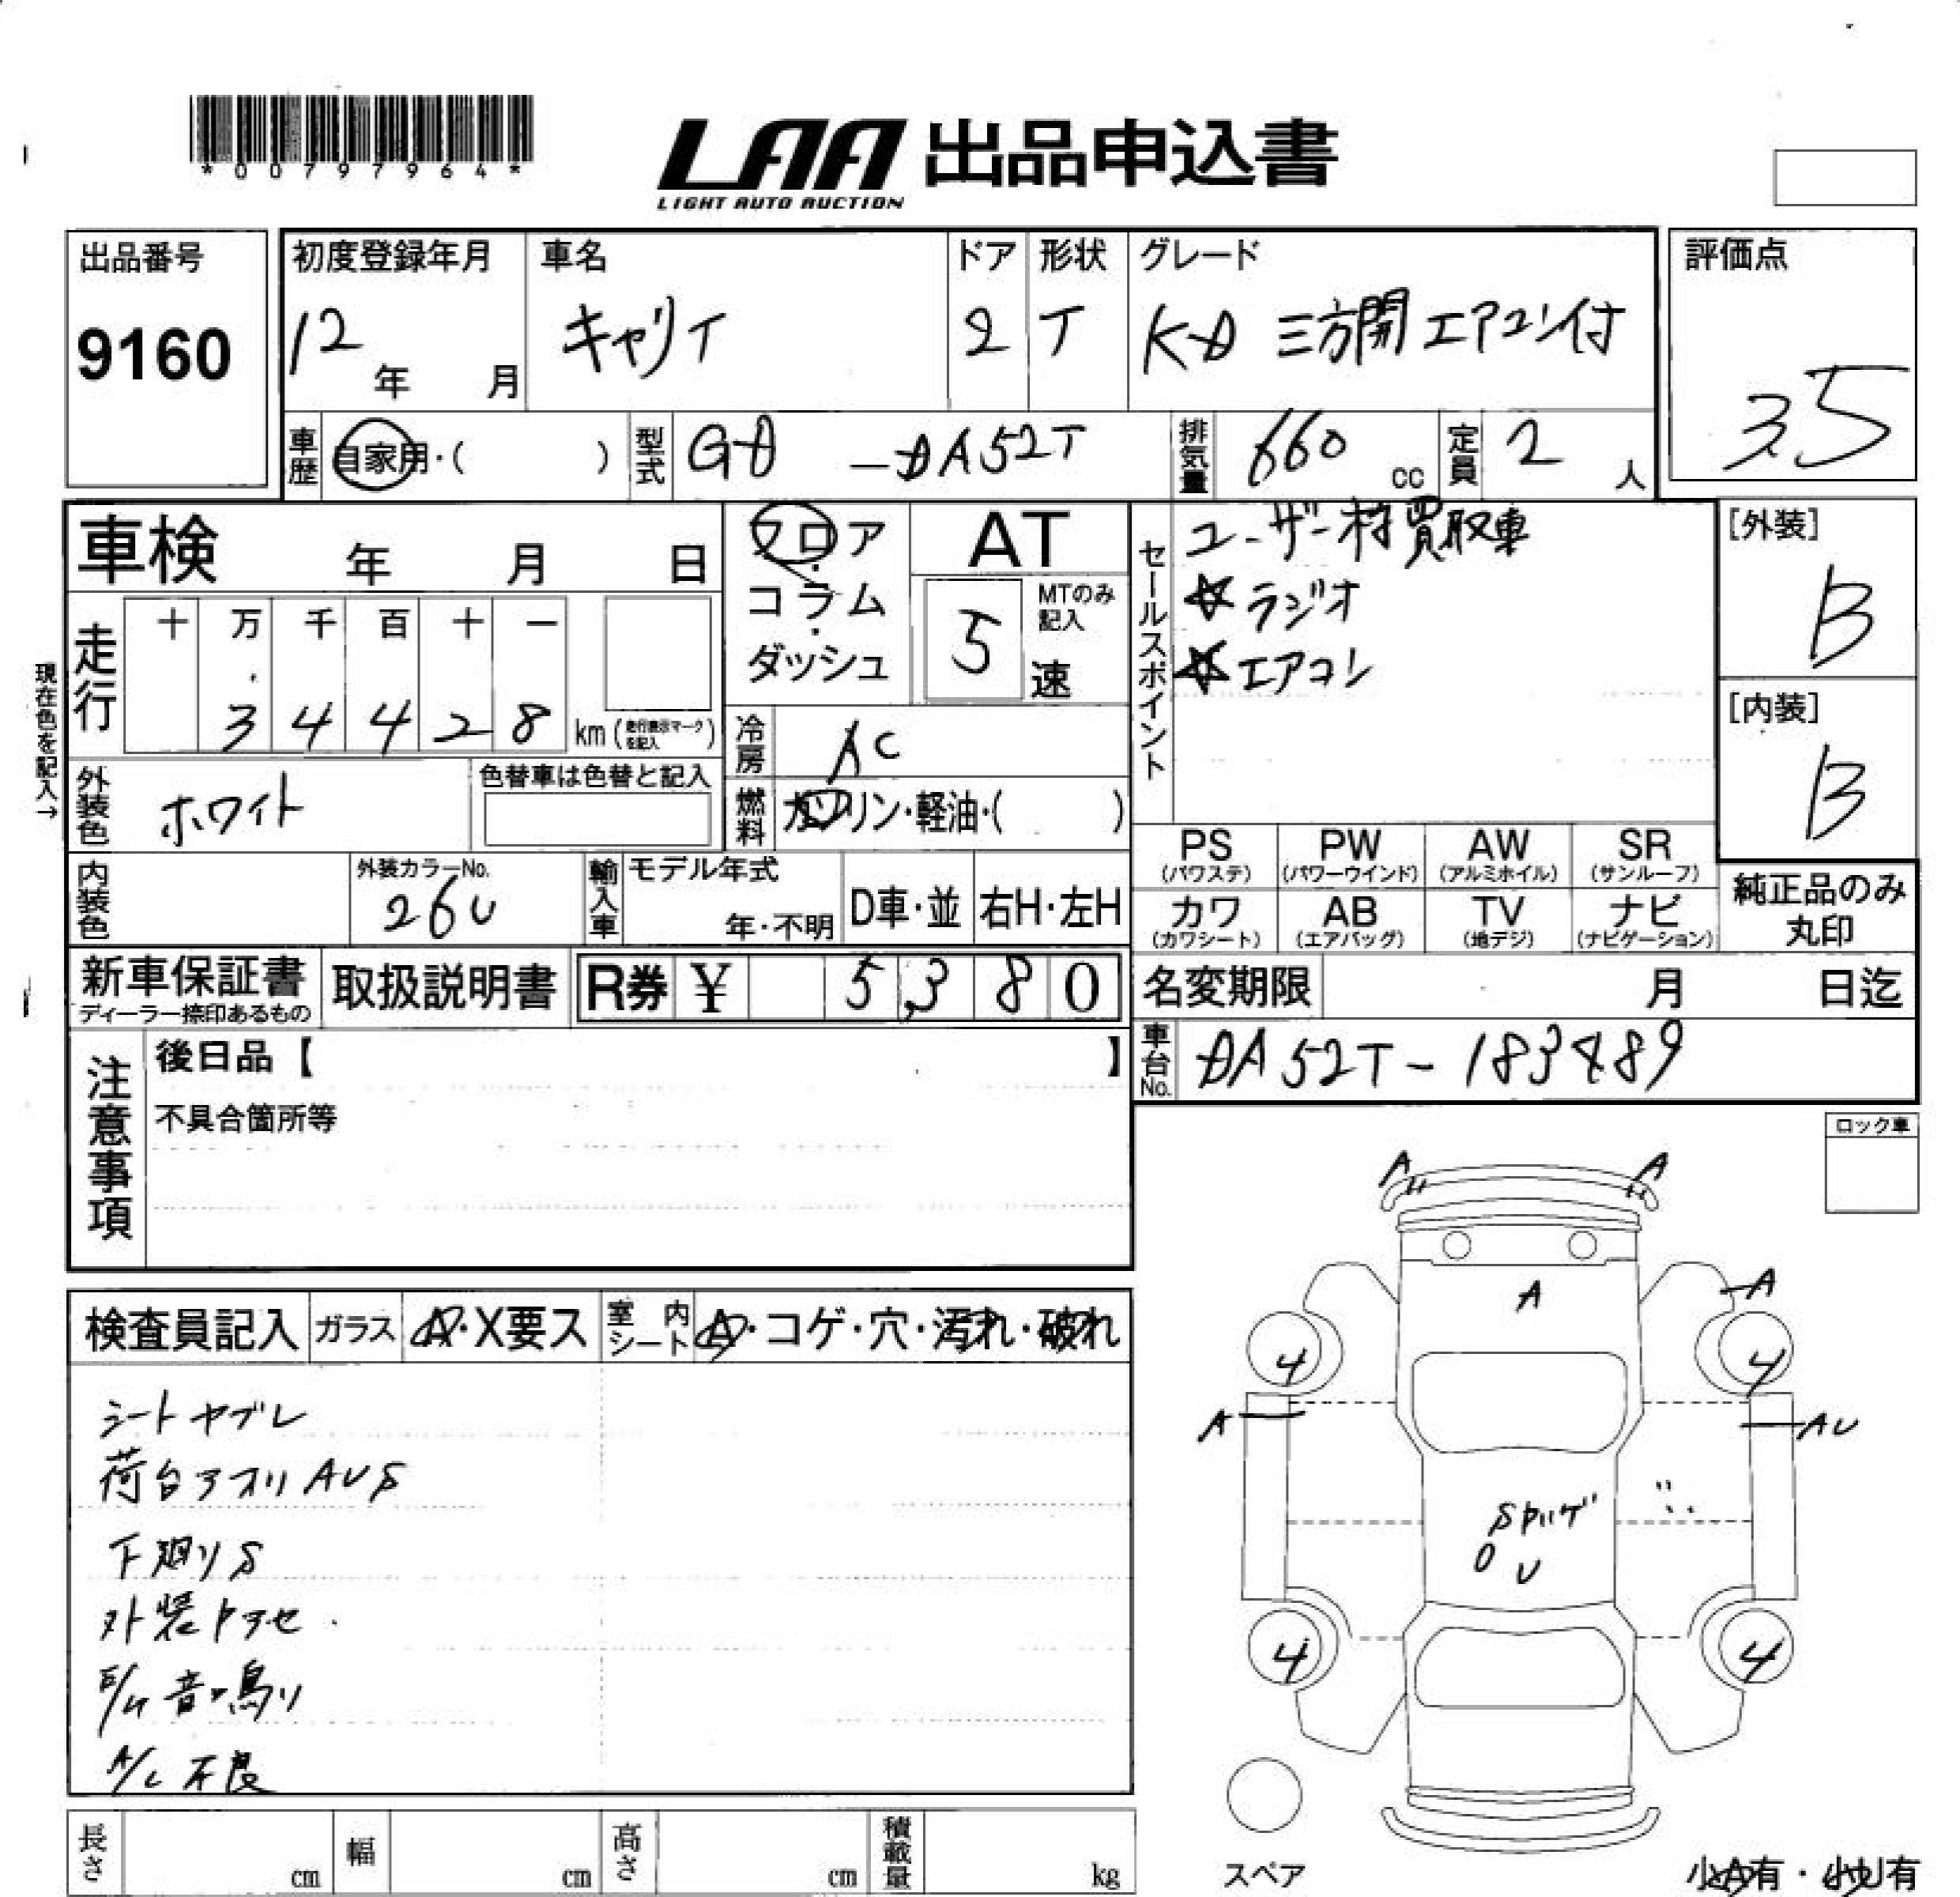 *00797964*
LAA 出品申込書
LIGHT AUTO AUCTION
出品番号
9160
初度登録年月 車名 ドア 形状 グレード
12年 月 キャリイ 2 T KD 三方開 エアコン付
評価点
3.5
車歴 自家用・( ) 型式 GD -DA52T 排気量 660 cc 定員 2 人
車検 年 月 日
フロア・コラム・ダッシュ
AT
5 MTのみ記入 速
セールスポイント
ユーザー様買取車
☆ラジオ
☆エアコン
[外装]
B
[内装]
B
現在色を記入→
走行 十 万 千 百 十 一
3 4 4 2 8 km (走行表示マークを記入)
冷房 AC
外装色 ホワイト 色替車は色替と記入
燃料 ガソリン・軽油・( )
PS (パワステ) PW (パワーウインド) AW (アルミホイル) SR (サンルーフ)
カワ (カワシート) AB (エアバッグ) TV (地デジ) ナビ (ナビゲーション)
純正品のみ丸印
内装色 外装カラーNo. 26U 輸入車 モデル年式 年・不明 D車・並 右H・左H
新車保証書 ディーラー捺印あるもの 取扱説明書 R券 ¥ 5,380
名変期限 月 日迄
車台No. DA52T-183489
注意事項
後日品【 】
不具合箇所等
ロック車
検査員記入 ガラス A・X要ス 室内シート A・コゲ・穴・汚れ・破れ
シートヤブレ
荷台アオリ AUS
下廻りS
外装トアセ
音・鳴り
A/C 不良
A A
A
A
4 4
A AU
S
U
4 4
スペア
小A有・小U有
長さ cm 幅 cm 高さ cm 積載量 kg